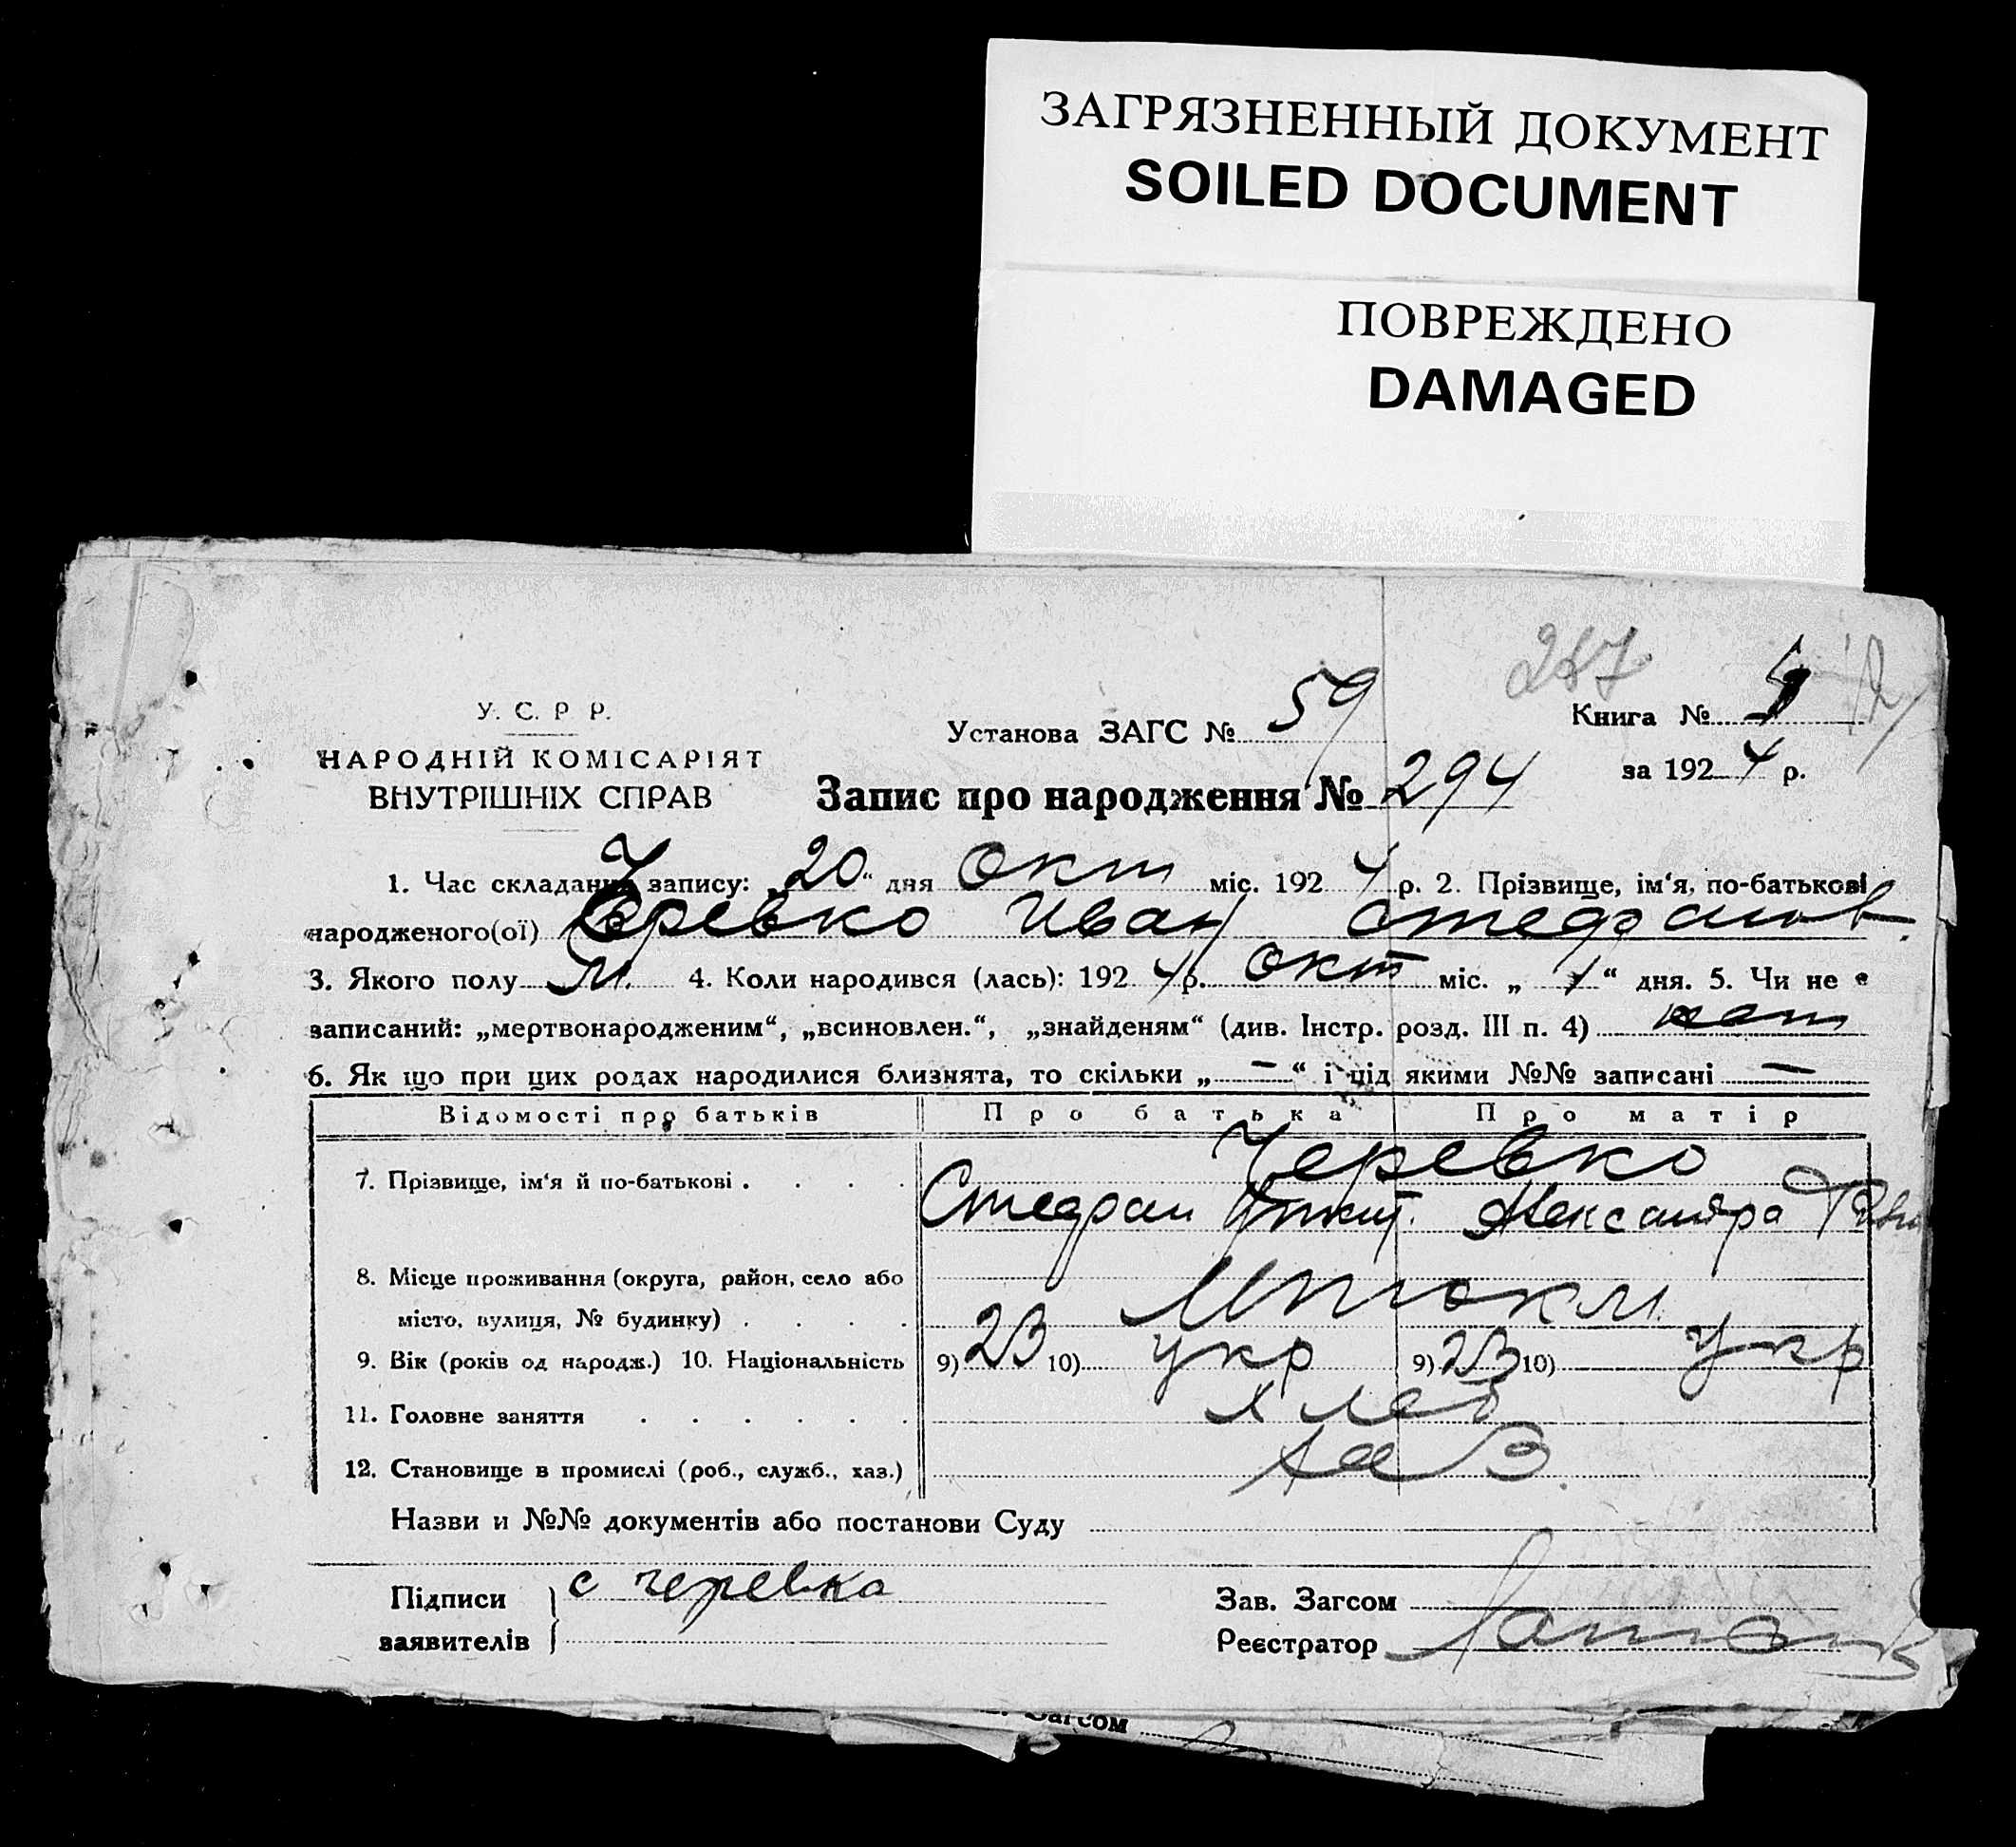 ЗАГРЯЗНЕННЫЙ ДОКУМЕНТ
SOILED DOCUMENT
ПОВРЕЖДЕНО
DAMAGED
У. С. Р Р.
НАРОДНІЙ КОМІСАРІЯТ
ВНУТРІШНІХ СПРАВ
Установа ЗАГС № 59
Книга №
за 1924 р.
Запис про народження № 294
1. Час складання запису: „20“ дня Окт міс. 1924 р. 2. Прізвище, ім‘я, по-батькові
народженого(ої) Черевко Иван Стефанов.
3. Якого полу М. 4. Коли народився (лась): 1924 р. Окт міс. „1“ дня. 5. Чи не є
записаний: „мертвонародженим“, „всиновлен.“, „знайденям“ (див. Інстр. розд. III п. 4) нет
6. Як що при цих родах народилися близнята, то скільки „—“ і під якими №№ записані —
Відомості про батьків Про батька Про матір
Черевко
7. Прізвище, ім‘я й по-батькові . . . . Стефан Александра
8. Місце проживання (округа, район, село або
місто, вулиця, № будинку) . . . .
9. Вік (років од народж.) 10. Національність 9) 23 10) укр 9) 23 10) укр
11. Головне заняття . . . . . . хлеб
12. Становище в промислі (роб., служб., хаз.)
Назви и №№ документів або постанови Суду
Підписи с черевко
заявителів
Зав. Загсом
Реєстратор
Загсом